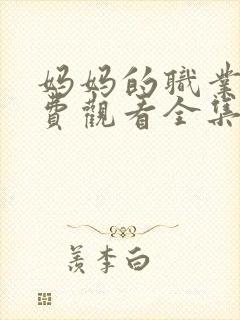 妈妈的職業
費觀看全集
羨李白